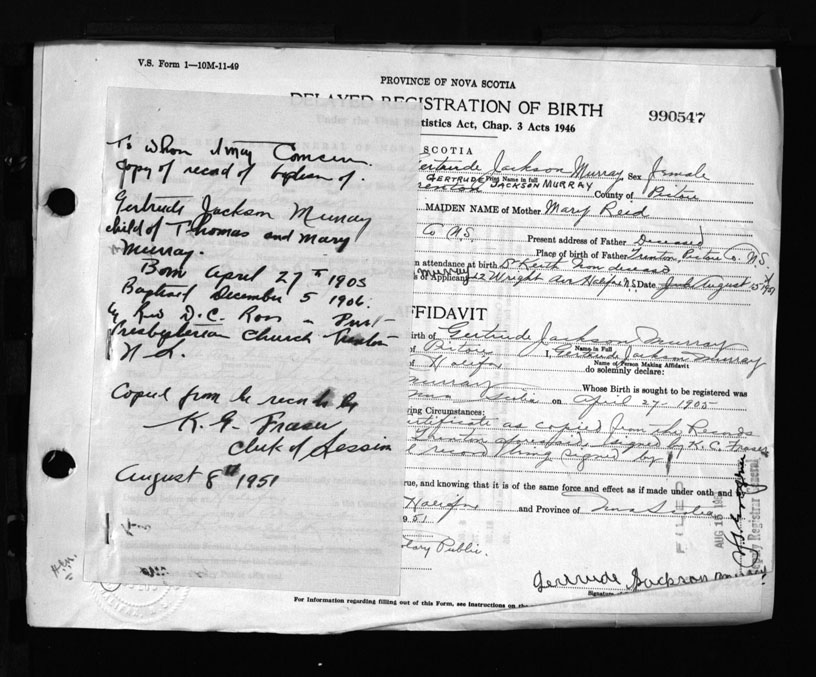 V.S. Form 1—10M-11-49
PROVINCE OF NOVA SCOTIA
DELAYED REGISTRATION OF BIRTH
990547
tistics Act, Chap. 3 Acts 1946
To whom it may Concern.
Copy of record of baptism of.
Gertrude Jackson Murray
child of Thomas and Mary
Murray.
Born April 27th 1905
Baptised December 5 1906.
by Rev D.C. Ross - First
Presbyterian Church Trenton
N.S.
Copied from the records by
K. G. Fraser
Clerk of Session
August 8th 1951
SCOTIA
Gertrude Jackson Murray Sex Female
Print Name in full
GERTRUDE JACKSON MURRAY
Trenton County of Pictou
MAIDEN NAME of Mother Mary Reid
Co N.S. Present address of Father Deceased
Place of birth of Father Trenton Pictou Co. N.S.
n attendance at birth Dr Keith deceased
of Applicant Murray 22 Wright Av Halifax N.S. Date August
FFIDAVIT
irth of Gertrude Jackson Murray
Name in Full
of Pictou I, Gertrude Jackson Murray
Name of Person Making Affidavit
of Halifax do solemnly declare:
Murray Whose Birth is sought to be registered was
Scotia on April 27- 1905
ing Circumstances:
ertificate as copied from the Records
Trenton signed by K.C. Fraser
record being signed by
rue, and knowing that it is of the same force and effect as if made under oath and
Halifax and Province of Nova Scotia
951
tary Public.
FILED
AUG 15
Registrar General
Gertrude Jackson Murray
Signature of
For Information regarding filling out of this Form, see Instructions on th